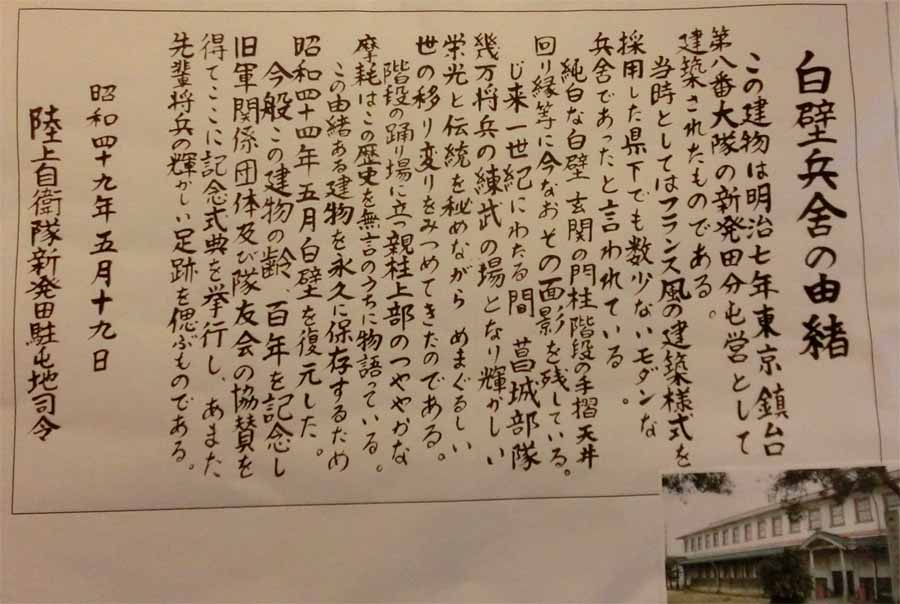 白壁兵舎の由緒
この建物は明治七年東京鎮台
第八番大隊の新発田分屯営として
建築されたものである。
当時としてはフランス風の建築様式を
採用した県下でも数少ないモダンな
兵舎であったと言われている。
純白な白壁 玄関の門柱 階段の手摺 天井
回り縁等に今なおその面影を残している。
じ来一世紀にわたる間 菖城部隊
幾万将兵の練武の場となり輝かしい
栄光と伝統を秘めながら めまぐるしい
世の移り変りをみつめてきたのである。
階段の踊り場に立つ親柱上部のつややかな
摩耗はこの歴史を無言のうちに物語っている。
この由緒ある建物を永久に保存するため
昭和四十四年五月白壁を復元した。
今般この建物の齢、百年を記念し
旧軍関係団体及び隊友会の協賛を
得てここに記念式典を挙行し、あまた
先輩将兵の輝かしい足跡を偲ぶものである。
昭和四十九年五月十九日
陸上自衛隊新発田駐屯地司令